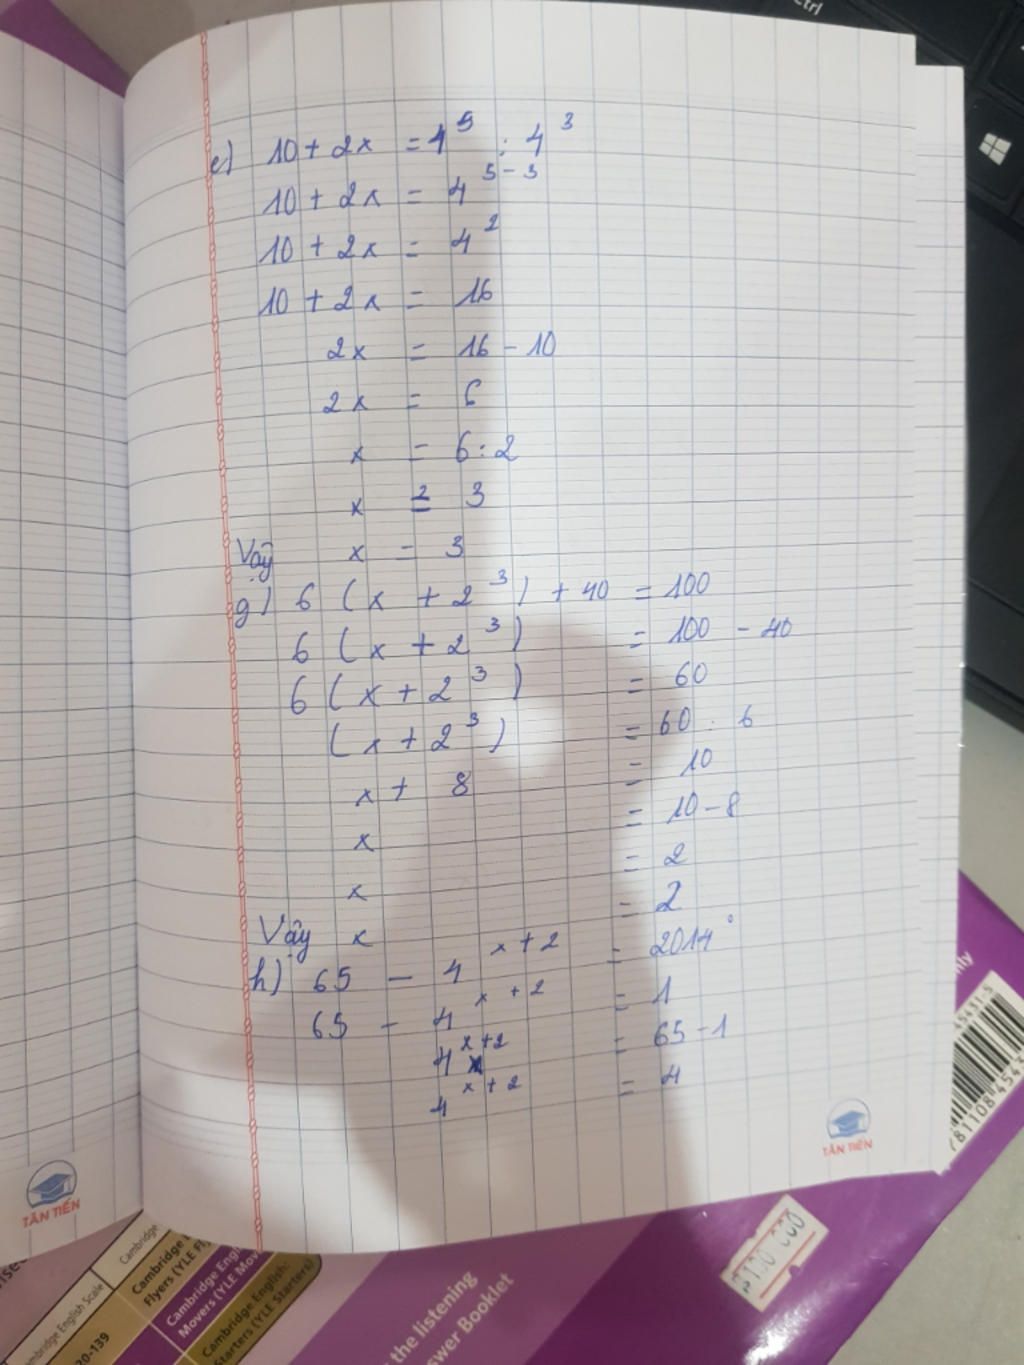 ctrl
e) 10 + 2x = 4⁵ : 4³
10 + 2x = 4⁵⁻³
10 + 2x = 4²
10 + 2x = 16
2x = 16 - 10
2x = 6
x = 6 : 2
x = 3
Vậy x = 3
g) 6 (x + 2³) + 40 = 100
6 (x + 2³) = 100 - 40
6 (x + 2³) = 60
(x + 2³) = 60 : 6
x + 8 = 10
x = 10 - 8
x = 2
Vậy x = 2
h) 65 - 4ˣ⁺² = 2014⁰
65 - 4ˣ⁺² = 1
4ˣ⁺² = 65 - 1
4ˣ⁺² = 4
TÂN TIẾN
TÂN TIẾN
Cambridge English Scale
20-139
Cambridge
Flyers (YLE Fl
Cambridge Engl
Movers (YLE Mov
Cambridge English:
Starters (YLE Starters)
the listening
swer Booklet